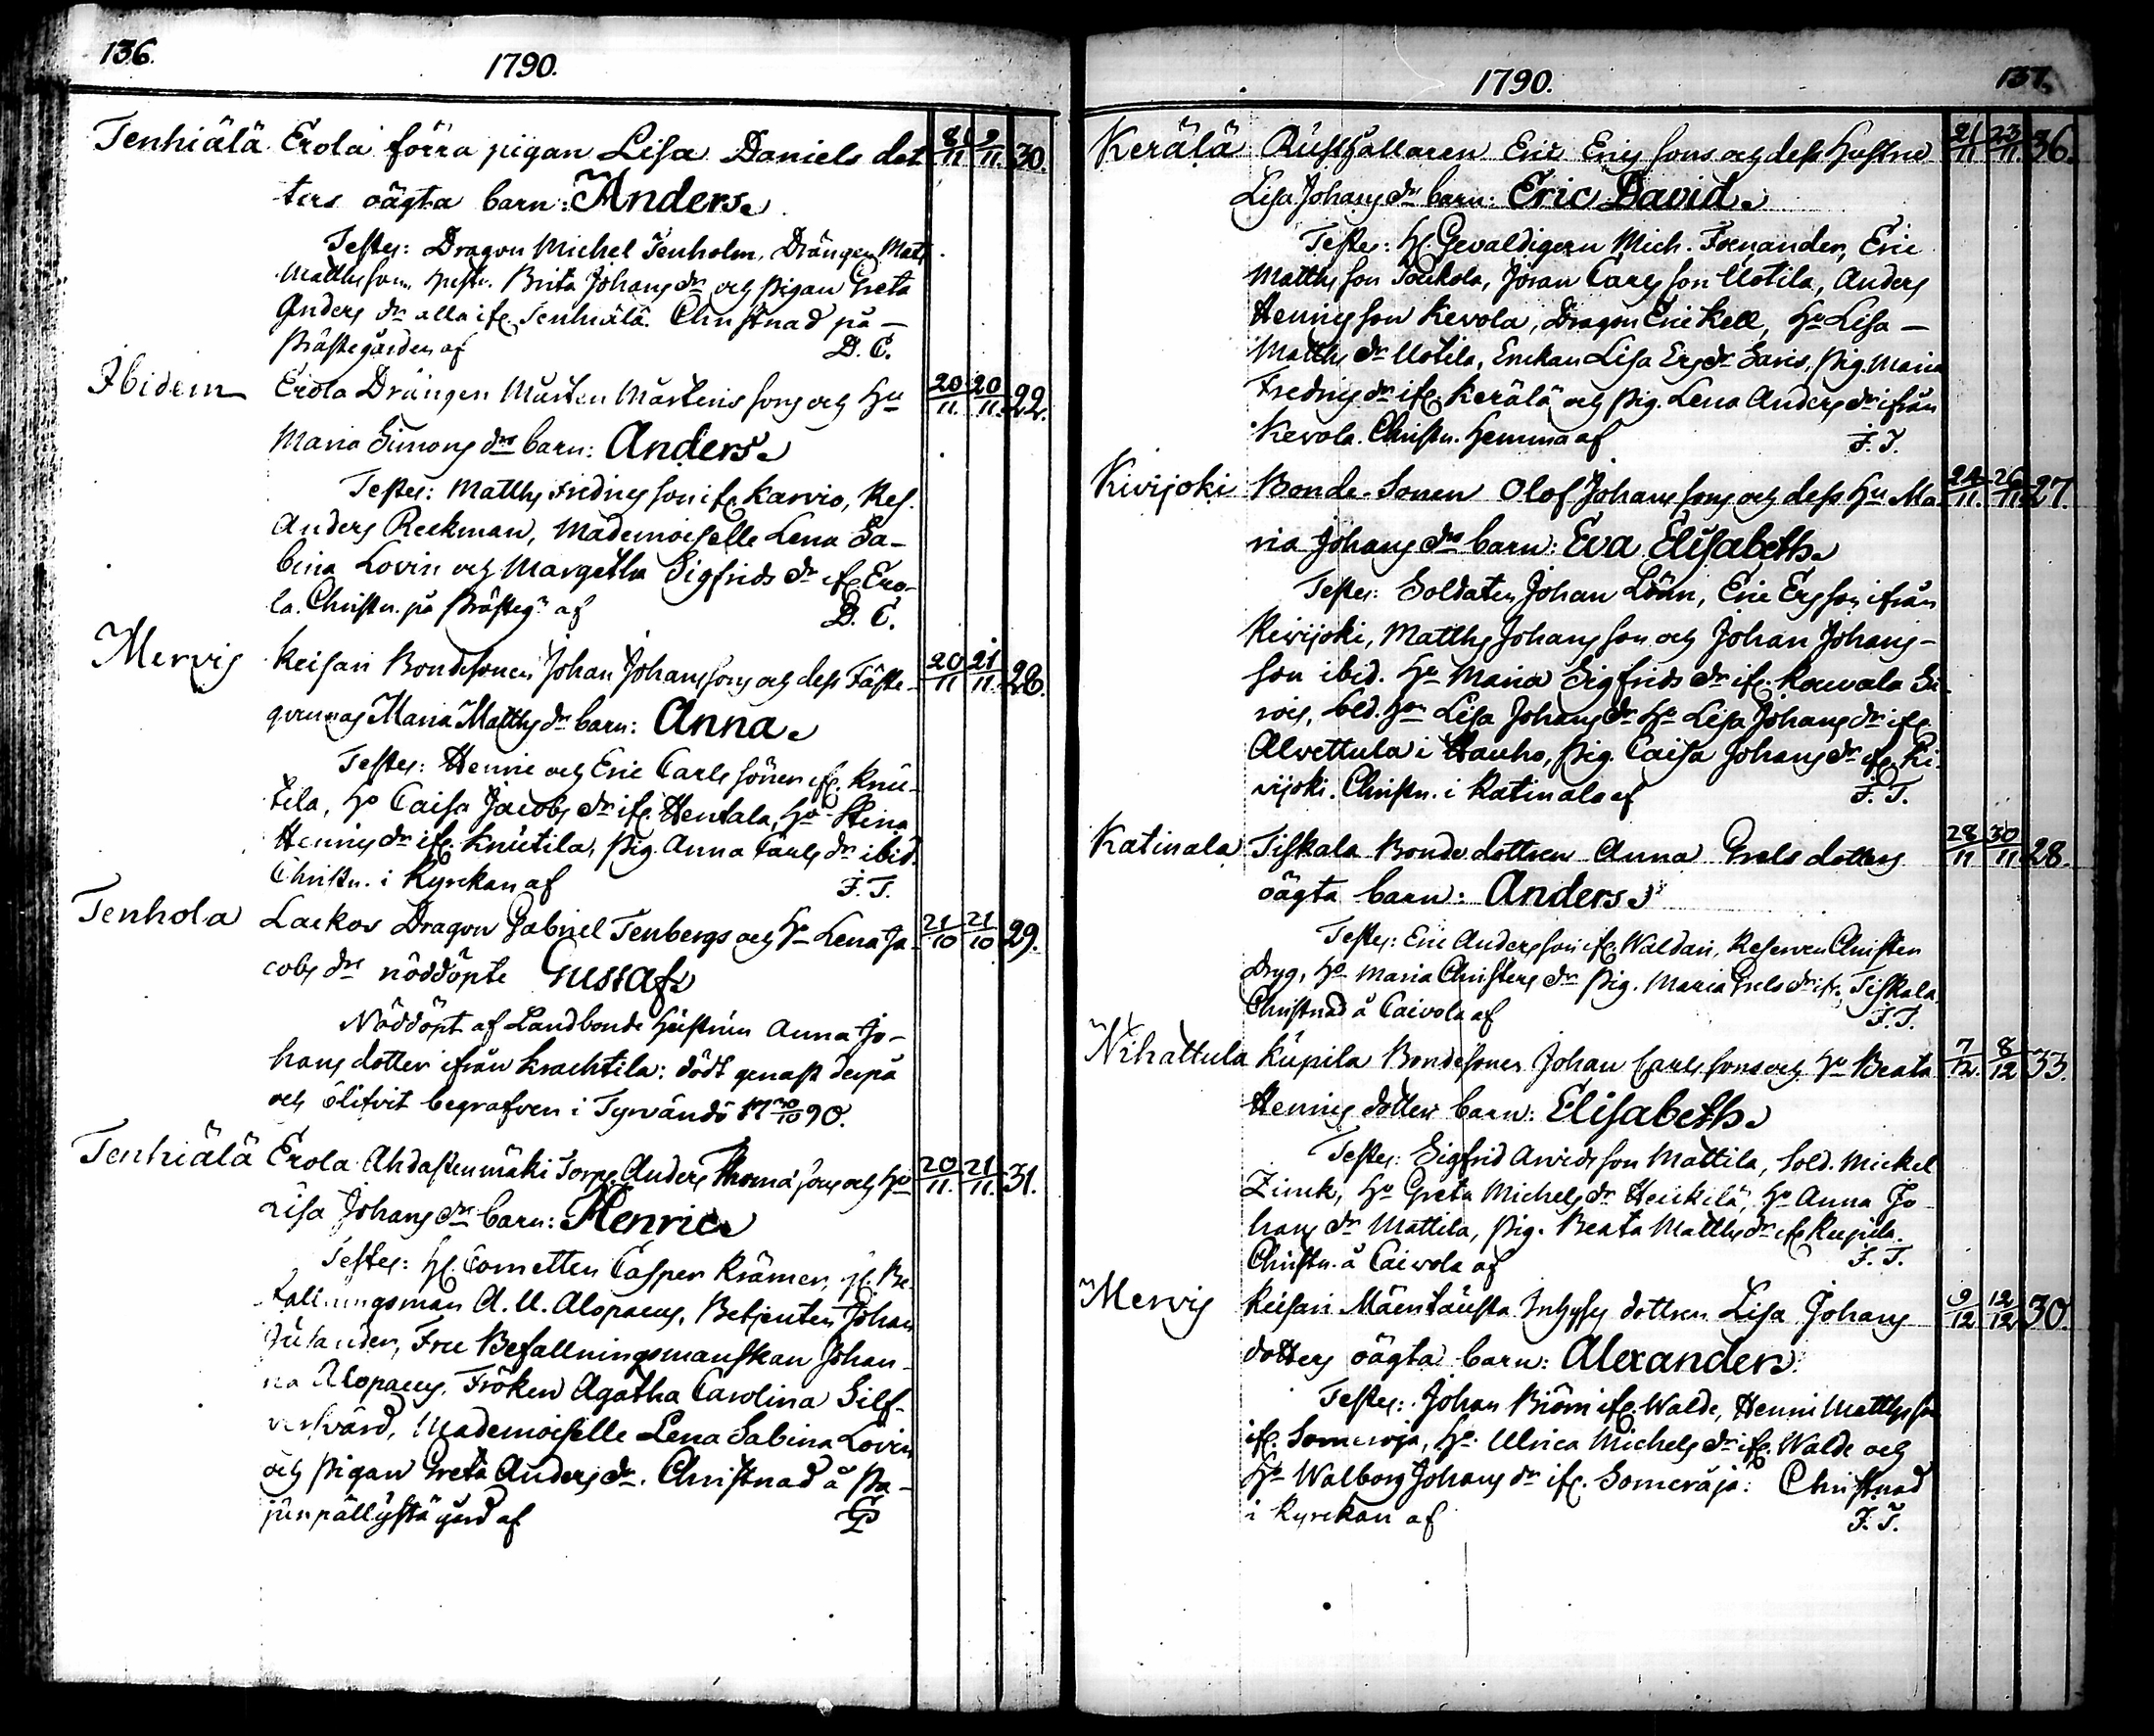 136.
1790.
Tenhiälä Erola förra pigan Lisa Daniels dot 8/11 9/11 30.
ters oägta barn: Anders.
Testes: Dragon Michel Tenholm, Drängen Matts
Matthsson, hustr. Brita Johans dr och Pigan Greta
Anders dr alla ifr. Tenhiälä. Christnad på –
Prästegården af D. C.
Ibidem Erola Drängen Mårten Mårtens sons och Hu 20/11. 20/11. 22.
Maria Simons drs barn: Anders.
Testes: Matths Fredrics son ifr. Karvio, Res.
Anders Reckman, Mademoiselle Lena Sa-
bina Lovin och Margetha Sigfrids dr ifr. Ero-
la. Christn. på Prästeg. af D. C.
Mervis Keisari Bondesonen Johan Johans sons och dess Fäste- 20/11 21/11. 28.
qvinnas Maria Matths dr barn: Anna.
Testes: Henric och Eric Carls söner ifr. Knu-
tila, Ho Caisa Jacobs dr ifr. Hentala, Ho Stina
Henrics dr ifr. Knutila, Pig. Anna Carls dr ibid.
Christn. i Kyrckan af F. T.
Tenhola Lackos Dragon Gabriel Tenbergs och Ho Lena Ja- 21/10 21/10 29.
cobs drs nöddöpte Gustaf.
Nöddöpt af Landbonde Hustrun Anna Jo-
hans dotter ifrån Krachtila: dödt genast derpå
och blifvit begrafven i Tyrvändö 17 30/10 90.
Tenhiälä Erola Ahdastenmäki Torp. Anders Thomæ sons och Hu 20/11. 21/11. 31.
Lisa Johans drs barn: Henric.
Testes: H. Cornetten Casper Krämer, H. Be-
fallningsman A. U. Alopæus, Betjenten Johan
Fru Befallningsmanskan Johan-
na Alopæus, Fröken Agatha Carolina Silf-
versvärd, Mademoiselle Lena Sabina Lovin
och Pigan Greta Anders dr. Christnad å Pa-
junpällystä gård af
1790.
137.
Kerälä Rusthållaren Eric Erics sons och dess Hustru 21/11 23/11. 36.
Lisa Johans drs barn: Eric David.
Testes: H. Gevaldigern Mich. Fornander, Eric
Matths son Toukola, Jöran Carls son Uotila, Anders
Henrics son Kevola, Dragon Eric Kell, Ho Lisa –
Matths dr Uotila, Enkan Lisa Ers dr Saris, Pig. Maria
Fredrics dr ifr. Kerälä och Pig. Lena Anders dr ifrån
Kevola. Christn. hemma af F. T.
Kivijoki Bonde-Sonen Olof Johans sons och dess Hu Ma- 24/11. 26/11. 27.
ria Johans drs barn: Eva Elisabeth.
Testes: Soldaten Johan Lönn, Eric Ers son ifrån
Kivijoki, Matths Johans son och Johan Johans-
son ibid. Ho Maria Sigfrids dr ifr. Kouvala Sai-
rois, sold. Hon Lisa Johans dr Ho Lisa Johans dr ifr.
Alvettula i Hauho, Pig. Caisa Johans dr ifr. Ki-
vijoki. Christn. i Katinala af F. T.
Katinala Tiskala Bonde dottren Anna Grels dotters 28/11 30/11 28.
oägta barn: Anders.
Testes: Eric Anders son ifr. Waldari, Reserven Christer
Dryg, Ho Maria Christers dr Pig. Maria Grels dr ifr. Tiskala.
Christnad å Caivola af F. T.
Nihattula Kupila Bondesonen Johan Carls sons och Ho Beata 7/12. 8/12 33.
Henrics dotters barn: Elisabeth.
Testes: Sigfrid Arvids son Mattila, sold. Mickel
Zimk, Ho Greta Michels dr Heickilä, Ho Anna Jo
hans dr Mattila, Pig. Beata Matths dr ifr. Kupila.
Christn. å Caivola af F. T.
Mervis Keisari Mäentausta Inhyses dottren Lisa Johans 9/12 12/12 30.
dotters oägta barn: Alexander.
Testes: Johan Biörn ifr. Walde, Henric Matths son
ifr. Someroja, Ho. Ulrica Michels dr ifr. Walde och
Ho Walborg Johans dr ifr. Someroja: Christnad
i Kyrckan af F. T.